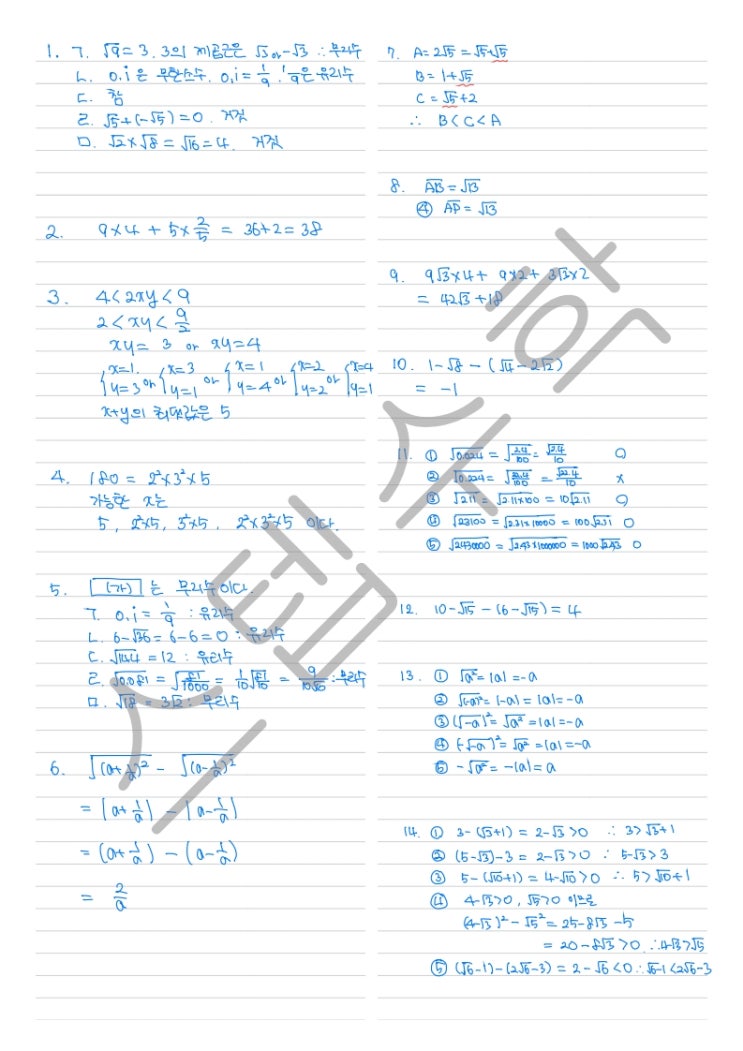 1. ㄱ. √9 = 3. 3의 제곱근은 √3 or -√3 ∴ 무리수
ㄴ. 0.i 은 무한소수. 0.i = 1/9. 1/9은 유리수
ㄷ. 참
ㄹ. √5+(-√5) = 0. 거짓
ㅁ. √2×√8 = √16 = 4. 거짓
2. 9×4 + 5×2/5 = 36+2 = 38
3. 4<2xy<9
2<xy<9/2
xy = 3 or xy = 4
{x=1, y=3 or {x=3, y=1 or {x=1, y=4 or {x=2, y=2 or {x=4, y=1
x+y의 최댓값은 5
4. 180 = 2²×3²×5
가능한 x는
5, 2²×5, 3²×5, 2²×3²×5 이다.
5. (가) 는 무리수이다.
ㄱ. 0.i = 1/9 : 유리수
ㄴ. 6-√36 = 6-6 = 0 : 유리수
ㄷ. √144 = 12 : 유리수
ㄹ. √0.081 = √(81/1000) = 1/10 √(81/10) = 9/(10√10) : 무리수
ㅁ. √18 = 3√2 : 무리수
6. √(a+1/a)² - √(a-1/a)²
= |a+1/a| - |a-1/a|
= (a+1/a) - (a-1/a)
= 2/a
7. A = 2√5 = √5+√5
B = 1+√5
C = √5+2
∴ B<C<A
8. AB = √13
④ AP = √13
9. 9√3×4 + 9×2 + 3√3×2
= 42√3+18
10. 1-√8 - (√4-2√2)
= -1
11. ① √0.024 = √(2.4/100) = √2.4/10 O
② √0.224 = √(22.4/100) = √22.4/10 X
③ √211 = √(2.11×100) = 10√2.11 O
④ √23100 = √(2.31×10000) = 100√2.31 O
⑤ √2430000 = √(2.43×1000000) = 1000√2.43 O
12. 10-√15 - (6-√15) = 4
13. ① √a² = |a| = -a
② √(-a)² = |-a| = |a| = -a
③ (√-a)² = √a² = |a| = -a
④ (-√-a)² = √a² = |a| = -a
⑤ -√a² = -|a| = a
14. ① 3-(√3+1) = 2-√3>0 ∴ 3>√3+1
② (5-√3)-3 = 2-√3>0 ∴ 5-√3>3
③ 5-(√10+1) = 4-√10>0 ∴ 5>√10+1
④ 4-√3>0, √5>0 이므로
(4-√3)² - √5² = 25-8√3-5
= 20-8√3>0 ∴ 4-√3>√5
⑤ (√6-1)-(2√6-3) = 2-√6<0 ∴ √6-1<2√6-3
스텝수학